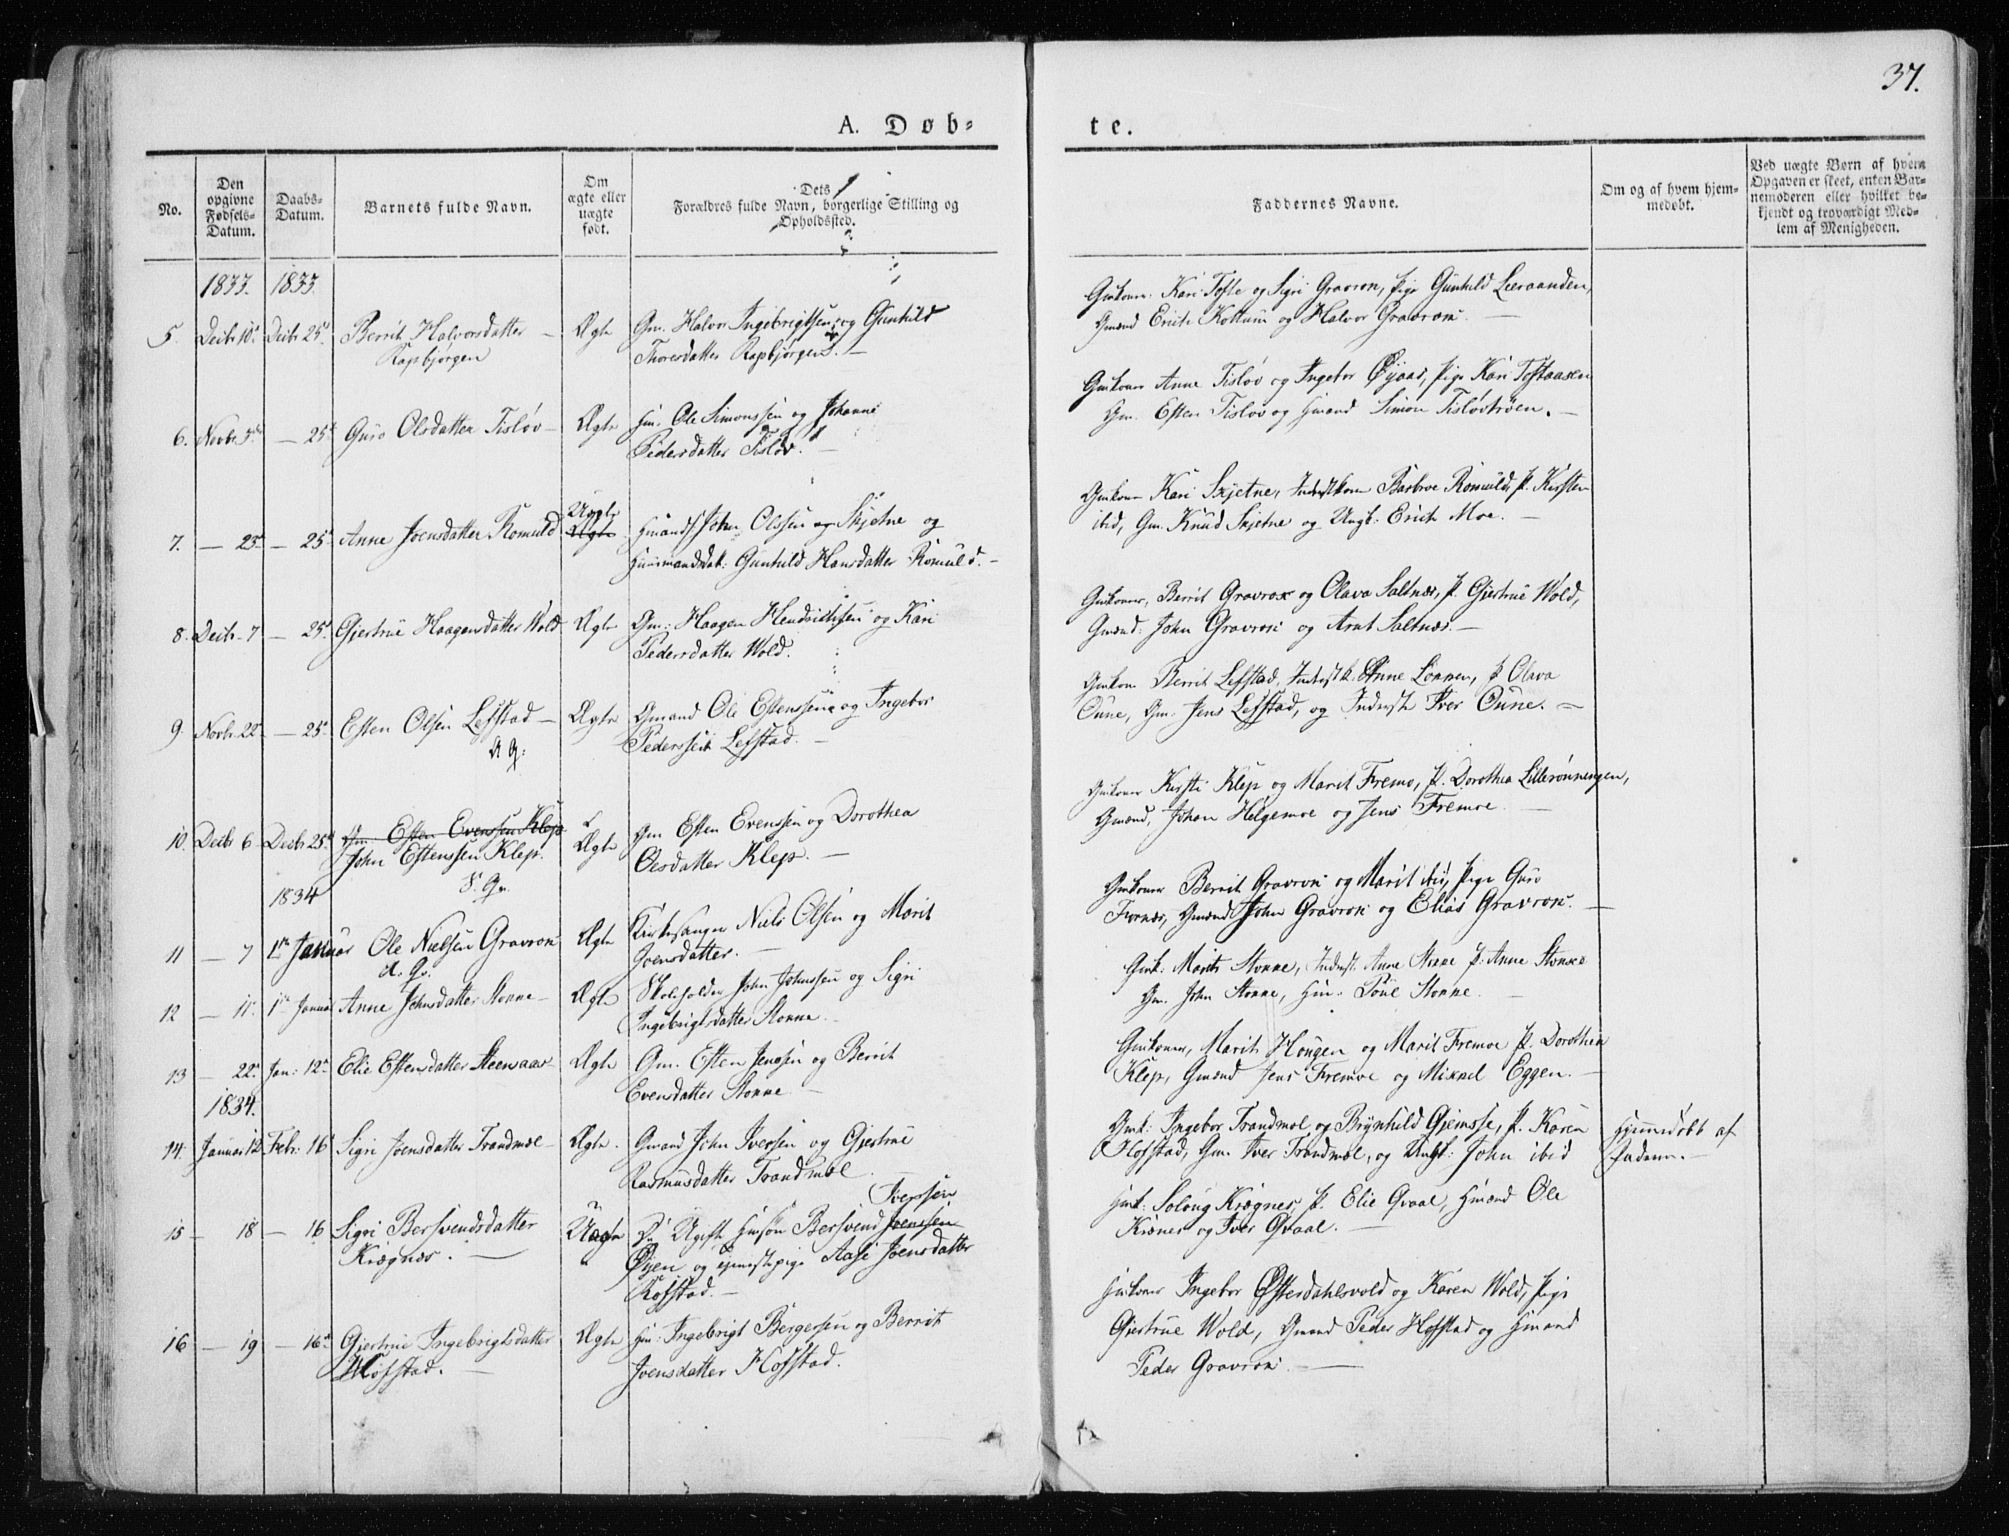 37.
A. Døb-
te.
No.
Den opgivne Fødsels-Datum.
Daabs-Datum.
Barnets fulde Navn.
Om ægte eller uægte født.
Dets Forældres fulde Navn, borgerlige Stilling og Opholdssted.
Faddernes Navne.
Om og af hvem hjem-medøbt.
Ved uægte Børn af hvem Opgaven er skeet, enten Bar-nemoderen eller hvilket be-kjendt og troværdigt Med-lem af Menigheden.
1833. 1833
5. Decbr 10. Decbr 25. Berrit Halvorsdatter
Rapbjørgen
Ægte
Gm. Halvor Ingebrigtsen og Gunhild
Thoresdatter Rapbjørgen. —
Gmkoner Kari Tofte og Sigri Gravron, Pige Gunhild Leeraanden,
Gmænd Erich Kottum og Halvor Gravron. —
6. Novbr — 25 Guro Olsdatter Tisløv —
Ægte
Hm. Ole Simonssen og Johanne
Pedersdatter Tisløv. —
Gmkoner Anne Tisløv og Ingebor Øyaas, Pige Kari Tofteaasen
Gm. Esten Tisløv og Hmand Simon Tisløvtrøen. —
7. — 23 — 25 Anne Joensdatter Romuld
Uægte
Ægte
John Olssen Skjetne og
Huusmandsdat: Gunhild Hansdatter Romuld. —
Gmkone Kari Skjetne, Inderstkone Barbroe Romuld, P. Kirsten
ibid, Gm. Knud Skjetne og Ungk: Erich Moe. —
8. Decbr 7 — 25. Gjertrue Haagensdatter Wold
Ægte
Gm: Haagen Hendrichsen og Kari
Pedersdatter Wold.
Gmkoner, Berrit Gravrok og Olava Saltnæs, P. Gjertrue Wold,
Gmænd: John Gravron og Arnt Saltnæs. —
9. Novbr. 22 — 25. Esten Olsen Lefstad —
Ægte
Gmand Ole Estenssen og Ingebor
Lefstad. —
Gmkone Berrit Lefstad, Inderst k. Anne Lonnen, P Olava
Oune, Gm. Jens Lefstad, og Inderst Iver Oune. —
10. Decbr 6 Decbr 25 Gm Esten Evenssen Klep
John Estenssen Klep.
Ægte
Gm Esten Evenssen og Dorothea
Olesdatter Klep. —
Gmkoner Kirsti Klep og Marit Fremo, P. Dorothea Lillerønningen,
Gmænd, Johan Helgemoe og Jens Fremoe —
1834
11 — 7 1ste Januar Ole Nielsen Gravron
Ægte
Kirkesanger Niels Olsen og Marit
Joensdatter. —
Gmkoner Berrit Gravron og Marit ibid, Pige Guro
Fornæs, Gmænd John Gravron og Elias Gravron. —
12 — 11. 1ste Januar Anne Johnsdatter Stonne —
Ægte
Skoleholder John Johnssen og Sigri
Ingebrigtsdatter Stonne. —
Gmk. Marit Stonne, Inderst. Anne P. Anne
Gm. John Stonne, Hm. Poul Stonne. —
13 — 22. Jan: 12. Elie Estensdatter Steenaas —
Ægte
Gm. Esten Jenssen og Berrit
Evensdatter Stonne —
Gmkoner, Marit Hougen og Marit Fremoe P. Dorothea
Klep, Gmænd Jens Fremoe og Mikael Eggen. —
1834.
14. Januar 12 Febr: 16 Sigri Joensdatter Trandmæl —
Ægte.
Gmand John Iversen og Gjertrue
Rasmusdatter Trandmæl —
Gmk: Ingebor Trandmæl og Brynhild Gjemse, P. Karen
Hofstad, Gm. Iver Trandmæl, og Ungk: John ibid
Hjemmedøbt af
Faderen. —
15 — 18 — 16 Sigri Bersvendsdatter
Krægnæs. —
Uægte
Ugift Bersvend Joenssen
Iverssen
Øyen og tjenestepige Aase Joensdatter
Rofstad. —
Hmk: Solong Krægnes, P. Elie Qvaal, Hmænd Ole
Krænes og Iver Qvaal. —
16 — 19 — 16. Gjertrue Ingebrigtsdatter
Hofstad. —
Ægte
Hm: Ingebrigt Bergersen og Berrit
Joensdatter Hofstad.
Hmkoner Ingebor Østerdahlsvold og Karen Wold, Pige
Gjertrue Wold, Gmand Peder Hofstad og Hmand
Peder Gravron. —